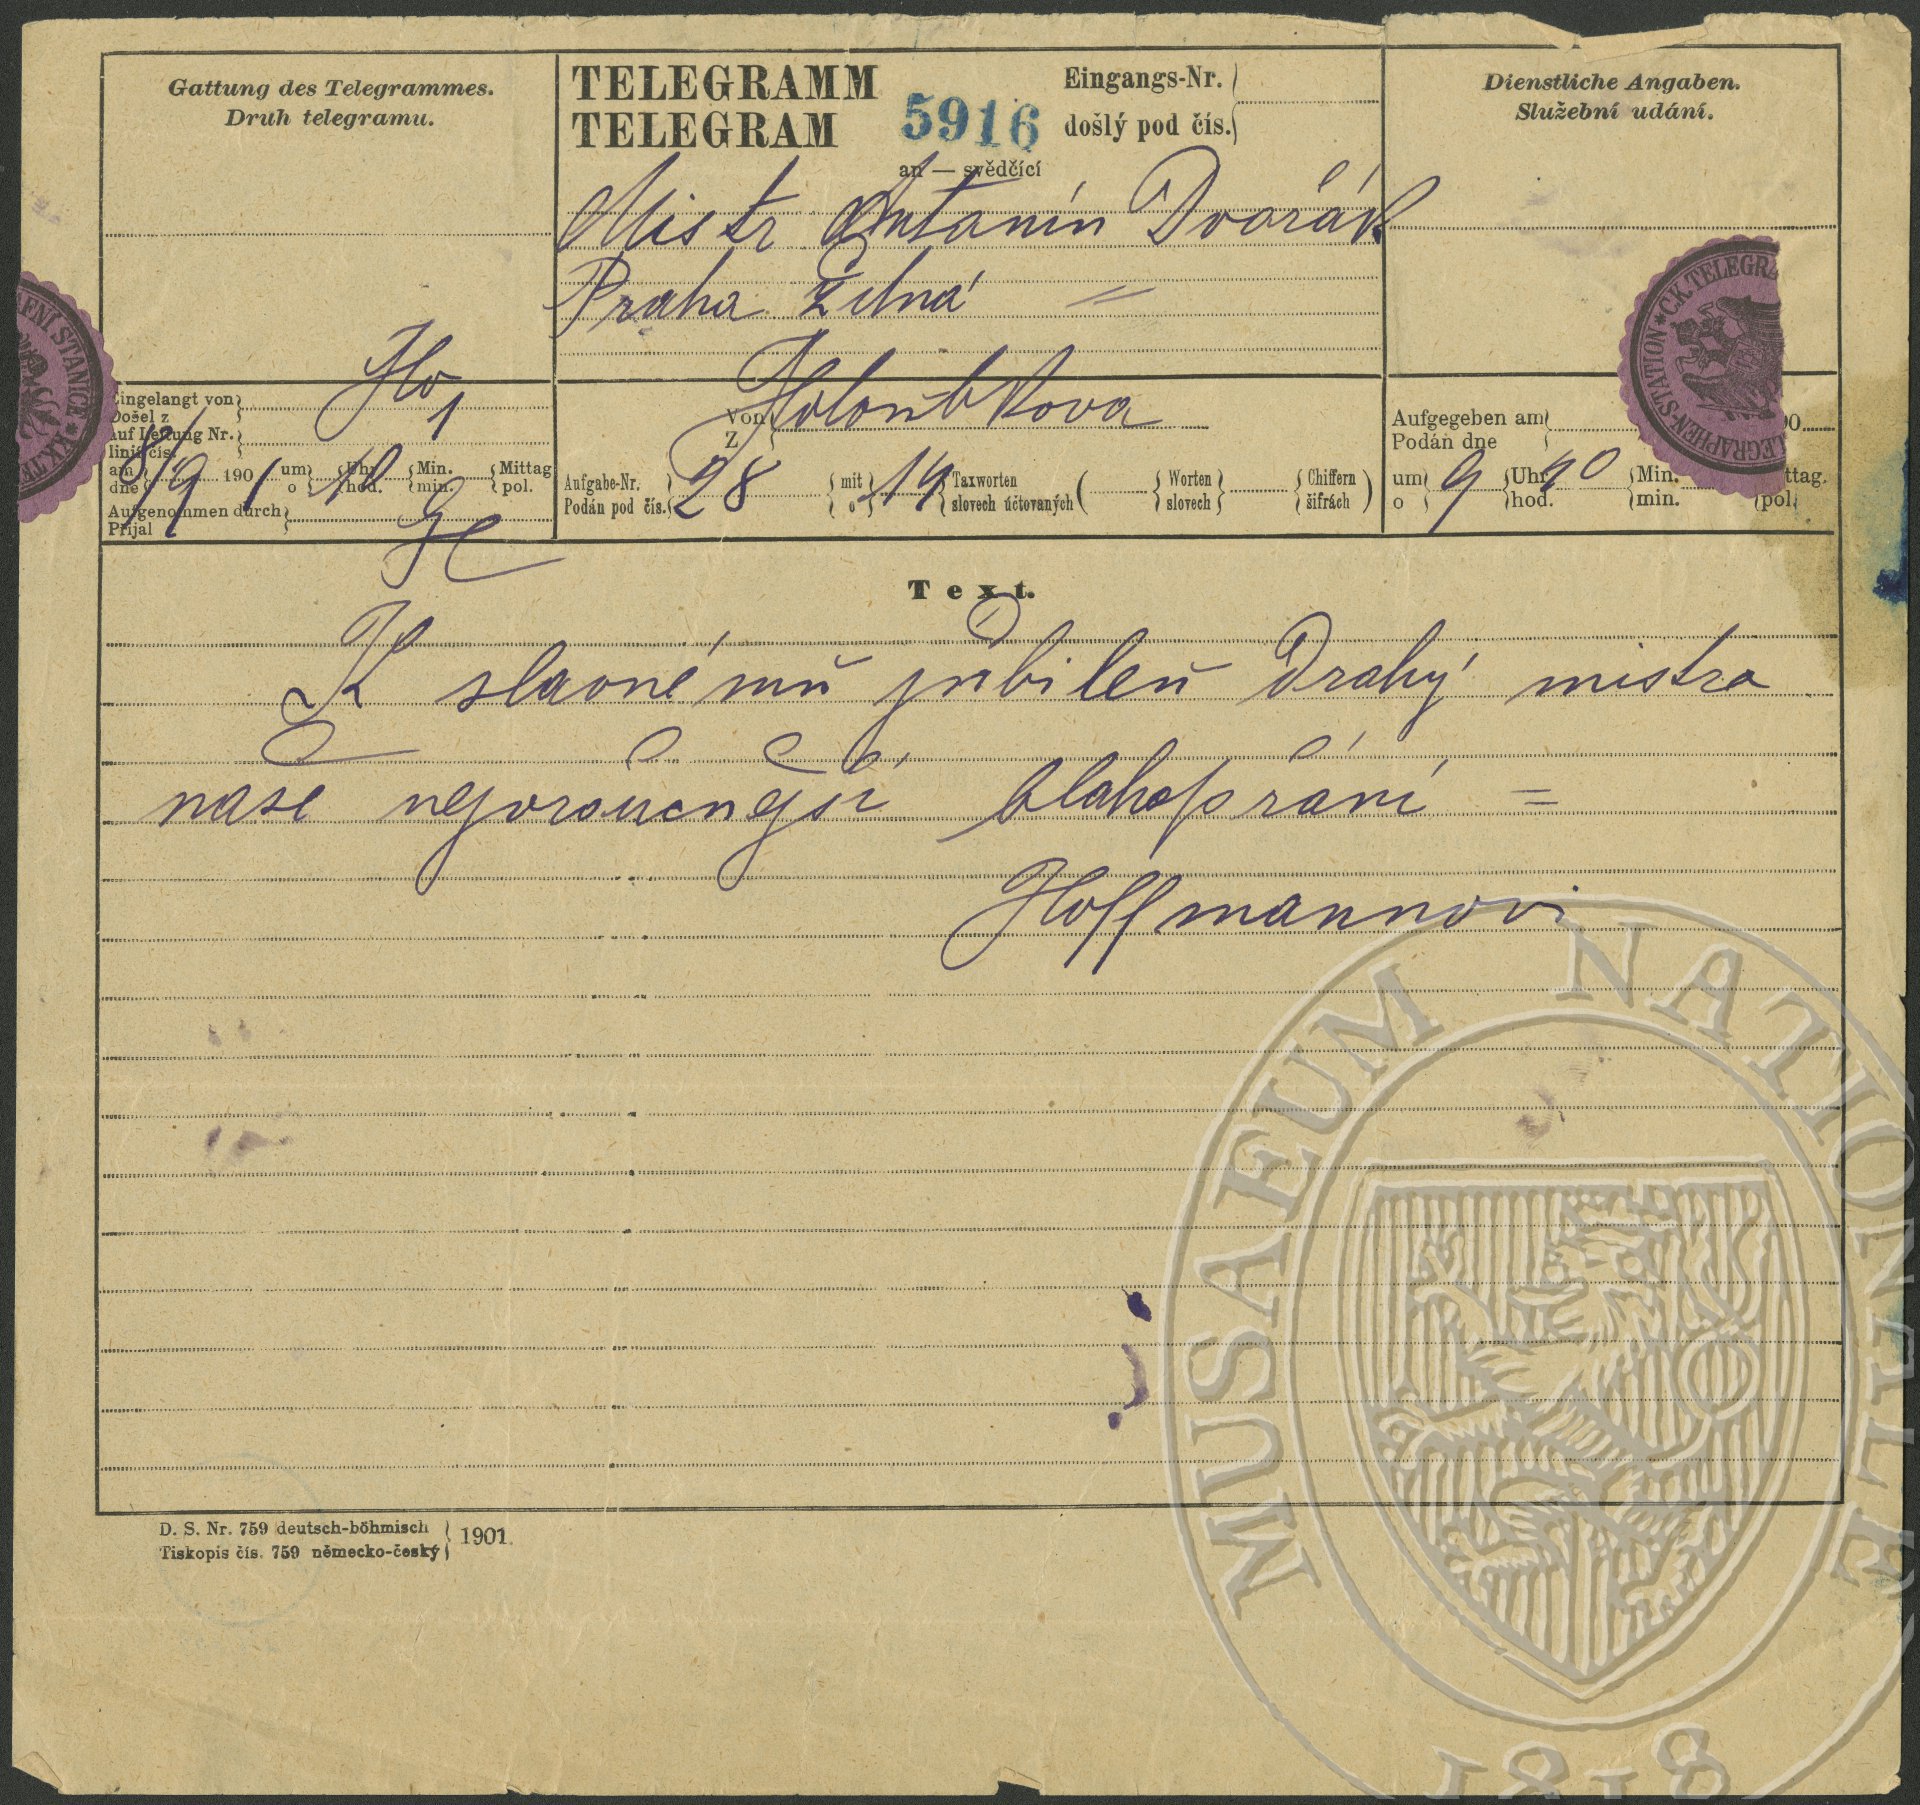 Gattung des Telegrammes.
Druh telegramu.
TELEGRAMM
TELEGRAM
5916
Eingangs-Nr.
došlý pod čís.
an — svědčící
Dienstliche Angaben.
Služební udání.
Mistr Antonín Dvořák
Praha Žitná =
ENÍ STANICE * K.K. TE
STATION * C.K. TELEGRA
LEGRAPHEN-
Eingelangt von
Došel z
auf Leitung Nr. 1
linii čís.
am 8/9 1901 um 10 Uhr Min. Mittag
dne o hod. min. pol.
Aufgenommen durch
Přijal
Von Holoubkova
Z
Aufgabe-Nr. 28 mit 14 Taxworten ( Worten Chiffern )
Podán pod čís. o slovech účtovaných slovech šifrách
Aufgegeben am 90
Podán dne
um 9 Uhr 40 Min. ttag.
o hod. min. pol.
Text.
K slavnému jubileu Drahý mistra
naše nejvroucnejší blahopřání =
Hoffmannovi
D. S. Nr. 759 deutsch-böhmisch
Tiskopis čís. 759 německo-český
1901.
MUSAEUM NATIONALE
1818